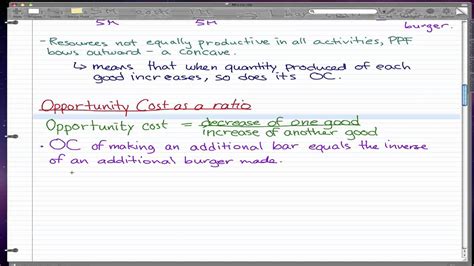 5M 5M burger.
- Resources not equally productive in all activities, PPF
bows outward - a concave.
↳ means that when quantity produced of each
good increases, so does its OC.
Opportunity Cost as a ratio
Opportunity cost = decrease of one good
increase of another good
• OC of making an additional bar equals the inverse
of an additional burger made.